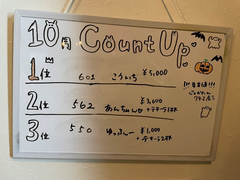 10月 Count Up
1位 601 こういち ¥5,000
2位 562 あんちゃん ¥3,000
+テキーラ1杯
3位 550 ゆっふぃー ¥1,000
+テキーラ2杯